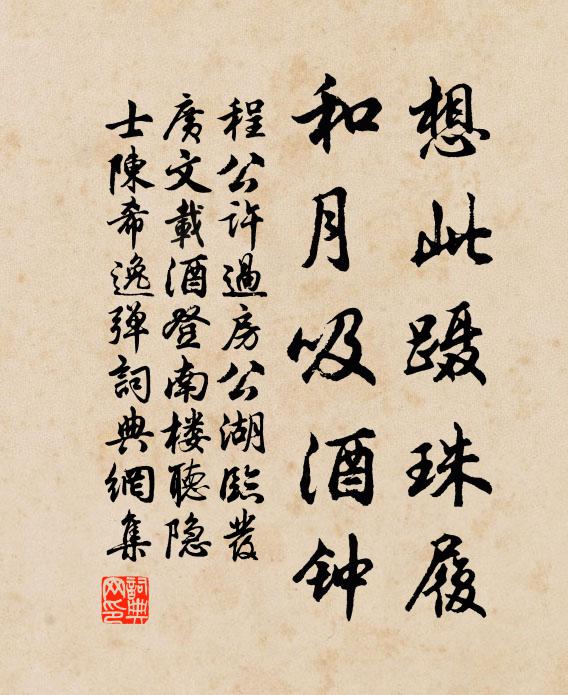 想此蹑珠履
和月吸酒钟
程公许过房公湖临发
广文载酒登南楼听隐
士陈希逸弹词典网集
詞典